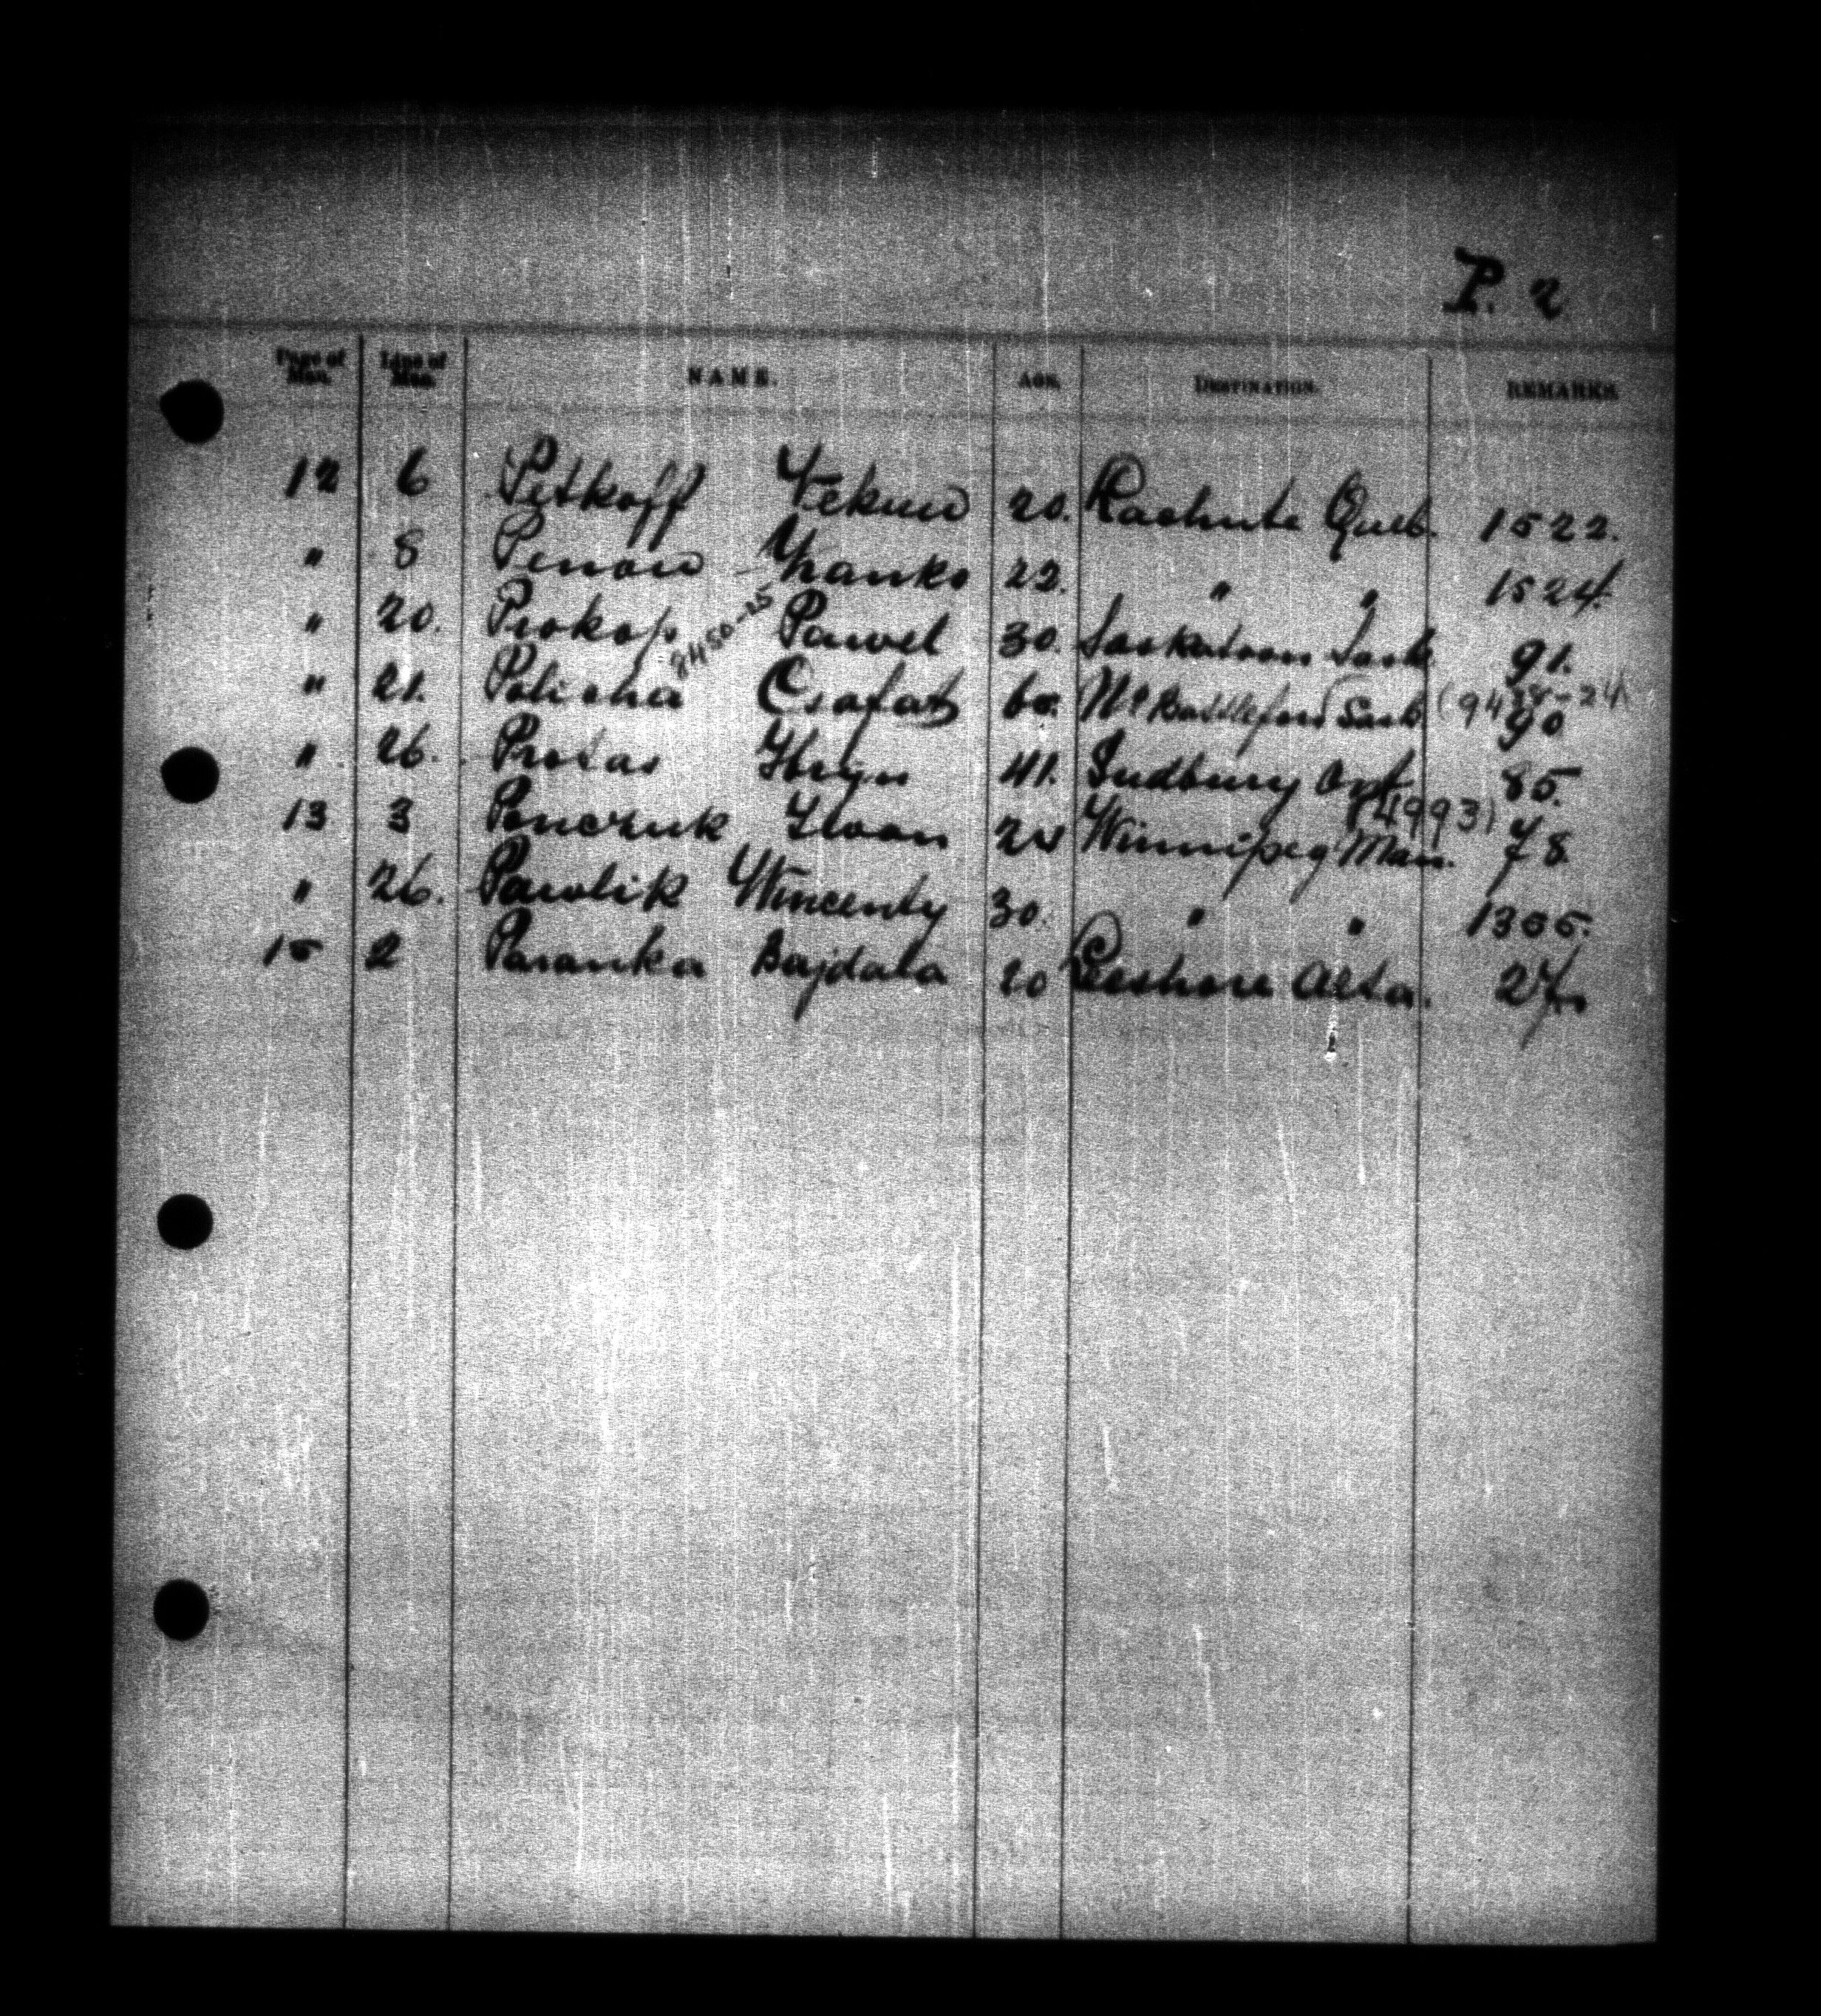 P. 2
Page of Man. Line of Man. NAME. AGE. DESTINATION. REMARKS.
12 6 Petkoff 20. Lachute Queb. 1522.
" 8 Penow Yhanko 22. " " 1524.
" 20. Prokop Pawel 30. Saskatoon Sask 91.
8450-25
" 21. Polischa Csafat 60. Nt Battleford Sask (9438-24
90
" 26. Protas Hryn 41. Sudbury Ont 85.
(4993)
13 3 Ponczuk Iwan 24 Winnipeg Man. 78.
" 26. Pawlik Wincenty 30. " " 1305.
15 2 Paranka Bajdala 20 Leeshore Alta. 27.